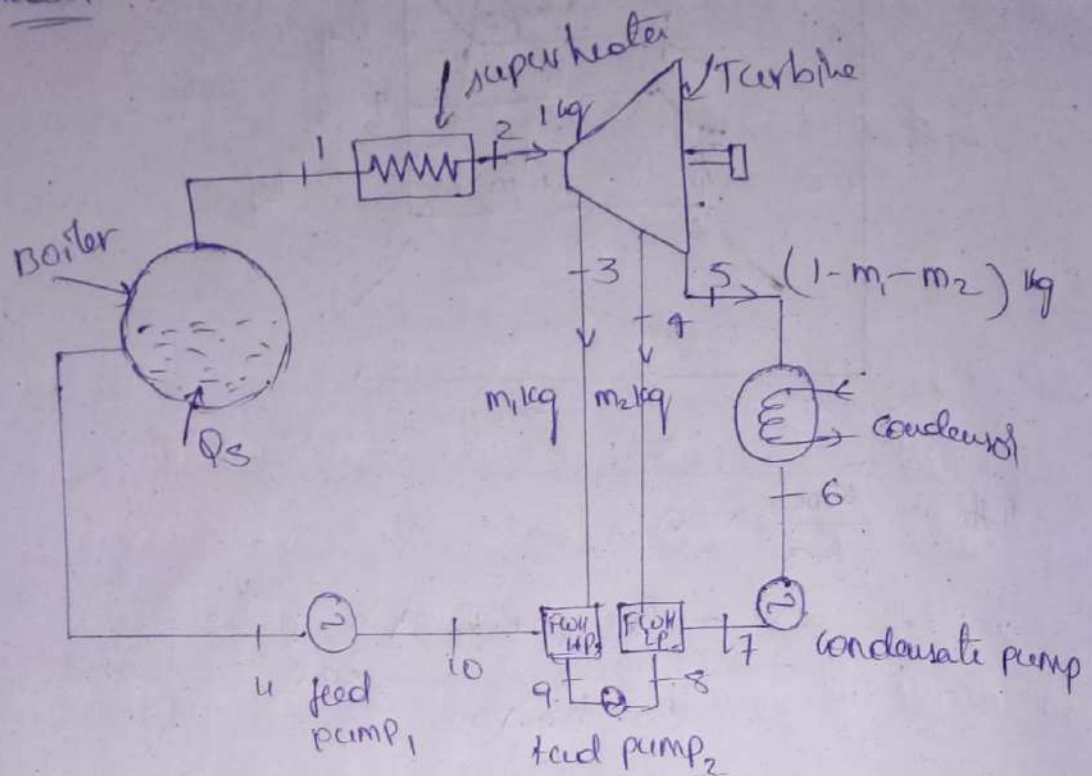 superheater
Turbine
1
2
1 kg
Boiler
3
5
(1 - m₁ - m₂) kg
4
m₁ kg
m₂ kg
condensor
Qs
6
FWH
HP
FWH
LP
7
condensate pump
11
feed
pump₁
10
9
8
feed pump₂